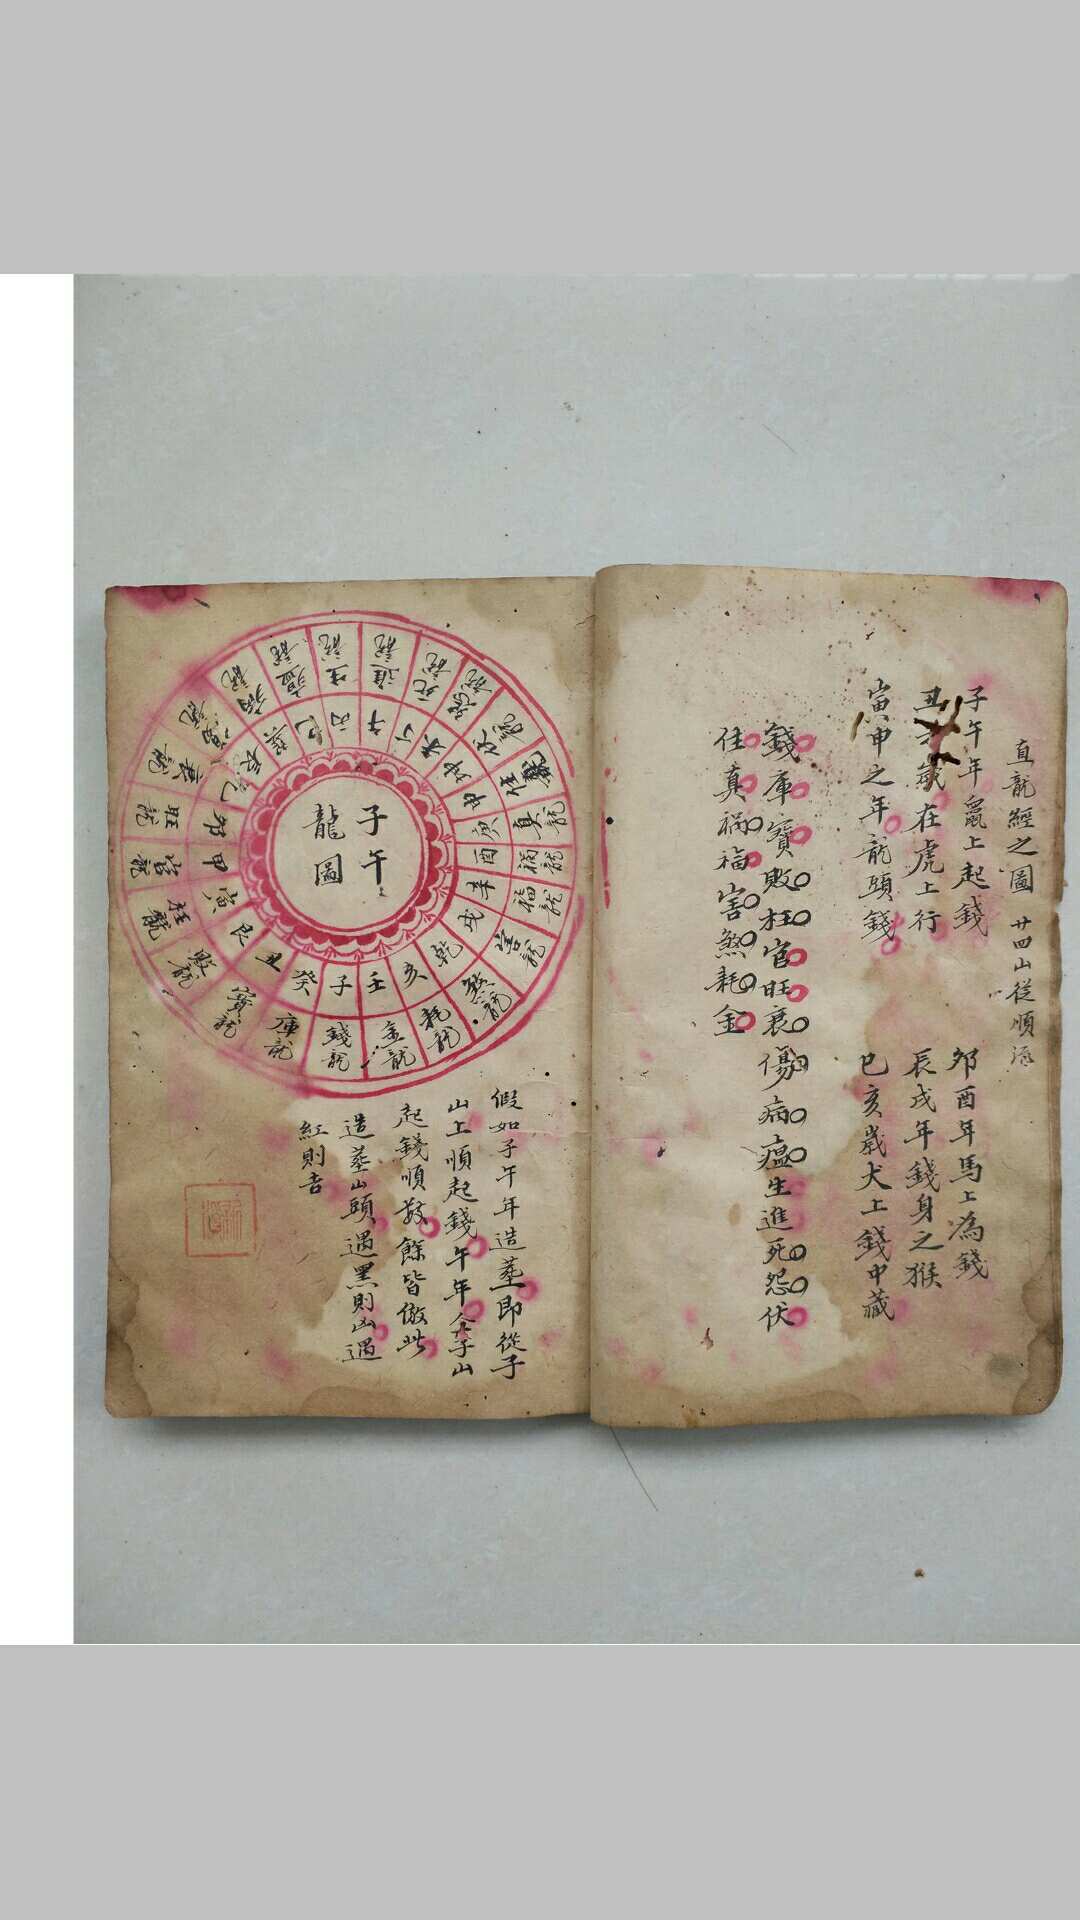 直龍經之圖 廿四山從順
子午年鼠上起錢 夘酉年馬上為錢
丑 歲在虎上行 辰戌年錢身之猴
寅申之年龍頭錢 巳亥歲犬上錢中藏
錢庫寶敗枉官旺衰傷病瘟生進死怨伏
住真禍福害煞耗金
子午
龍圖
子 癸 丑 艮 寅 甲 夘 乙 辰 巽 巳 丙 午 丁 未 坤 申 庚 酉 辛 戌 乾 亥 壬
錢龍 庫龍 寶龍 敗龍 枉龍 官龍 旺龍 衰龍 病龍 瘟龍 生龍 進龍 死龍 怨龍 真龍 禍龍 福龍 害龍 煞龍 耗龍 金龍
假如子午年造塟即從子
山上順起錢午年人子山
起錢順数餘皆倣此
造塟山頭遇黑則凶遇
紅則吉